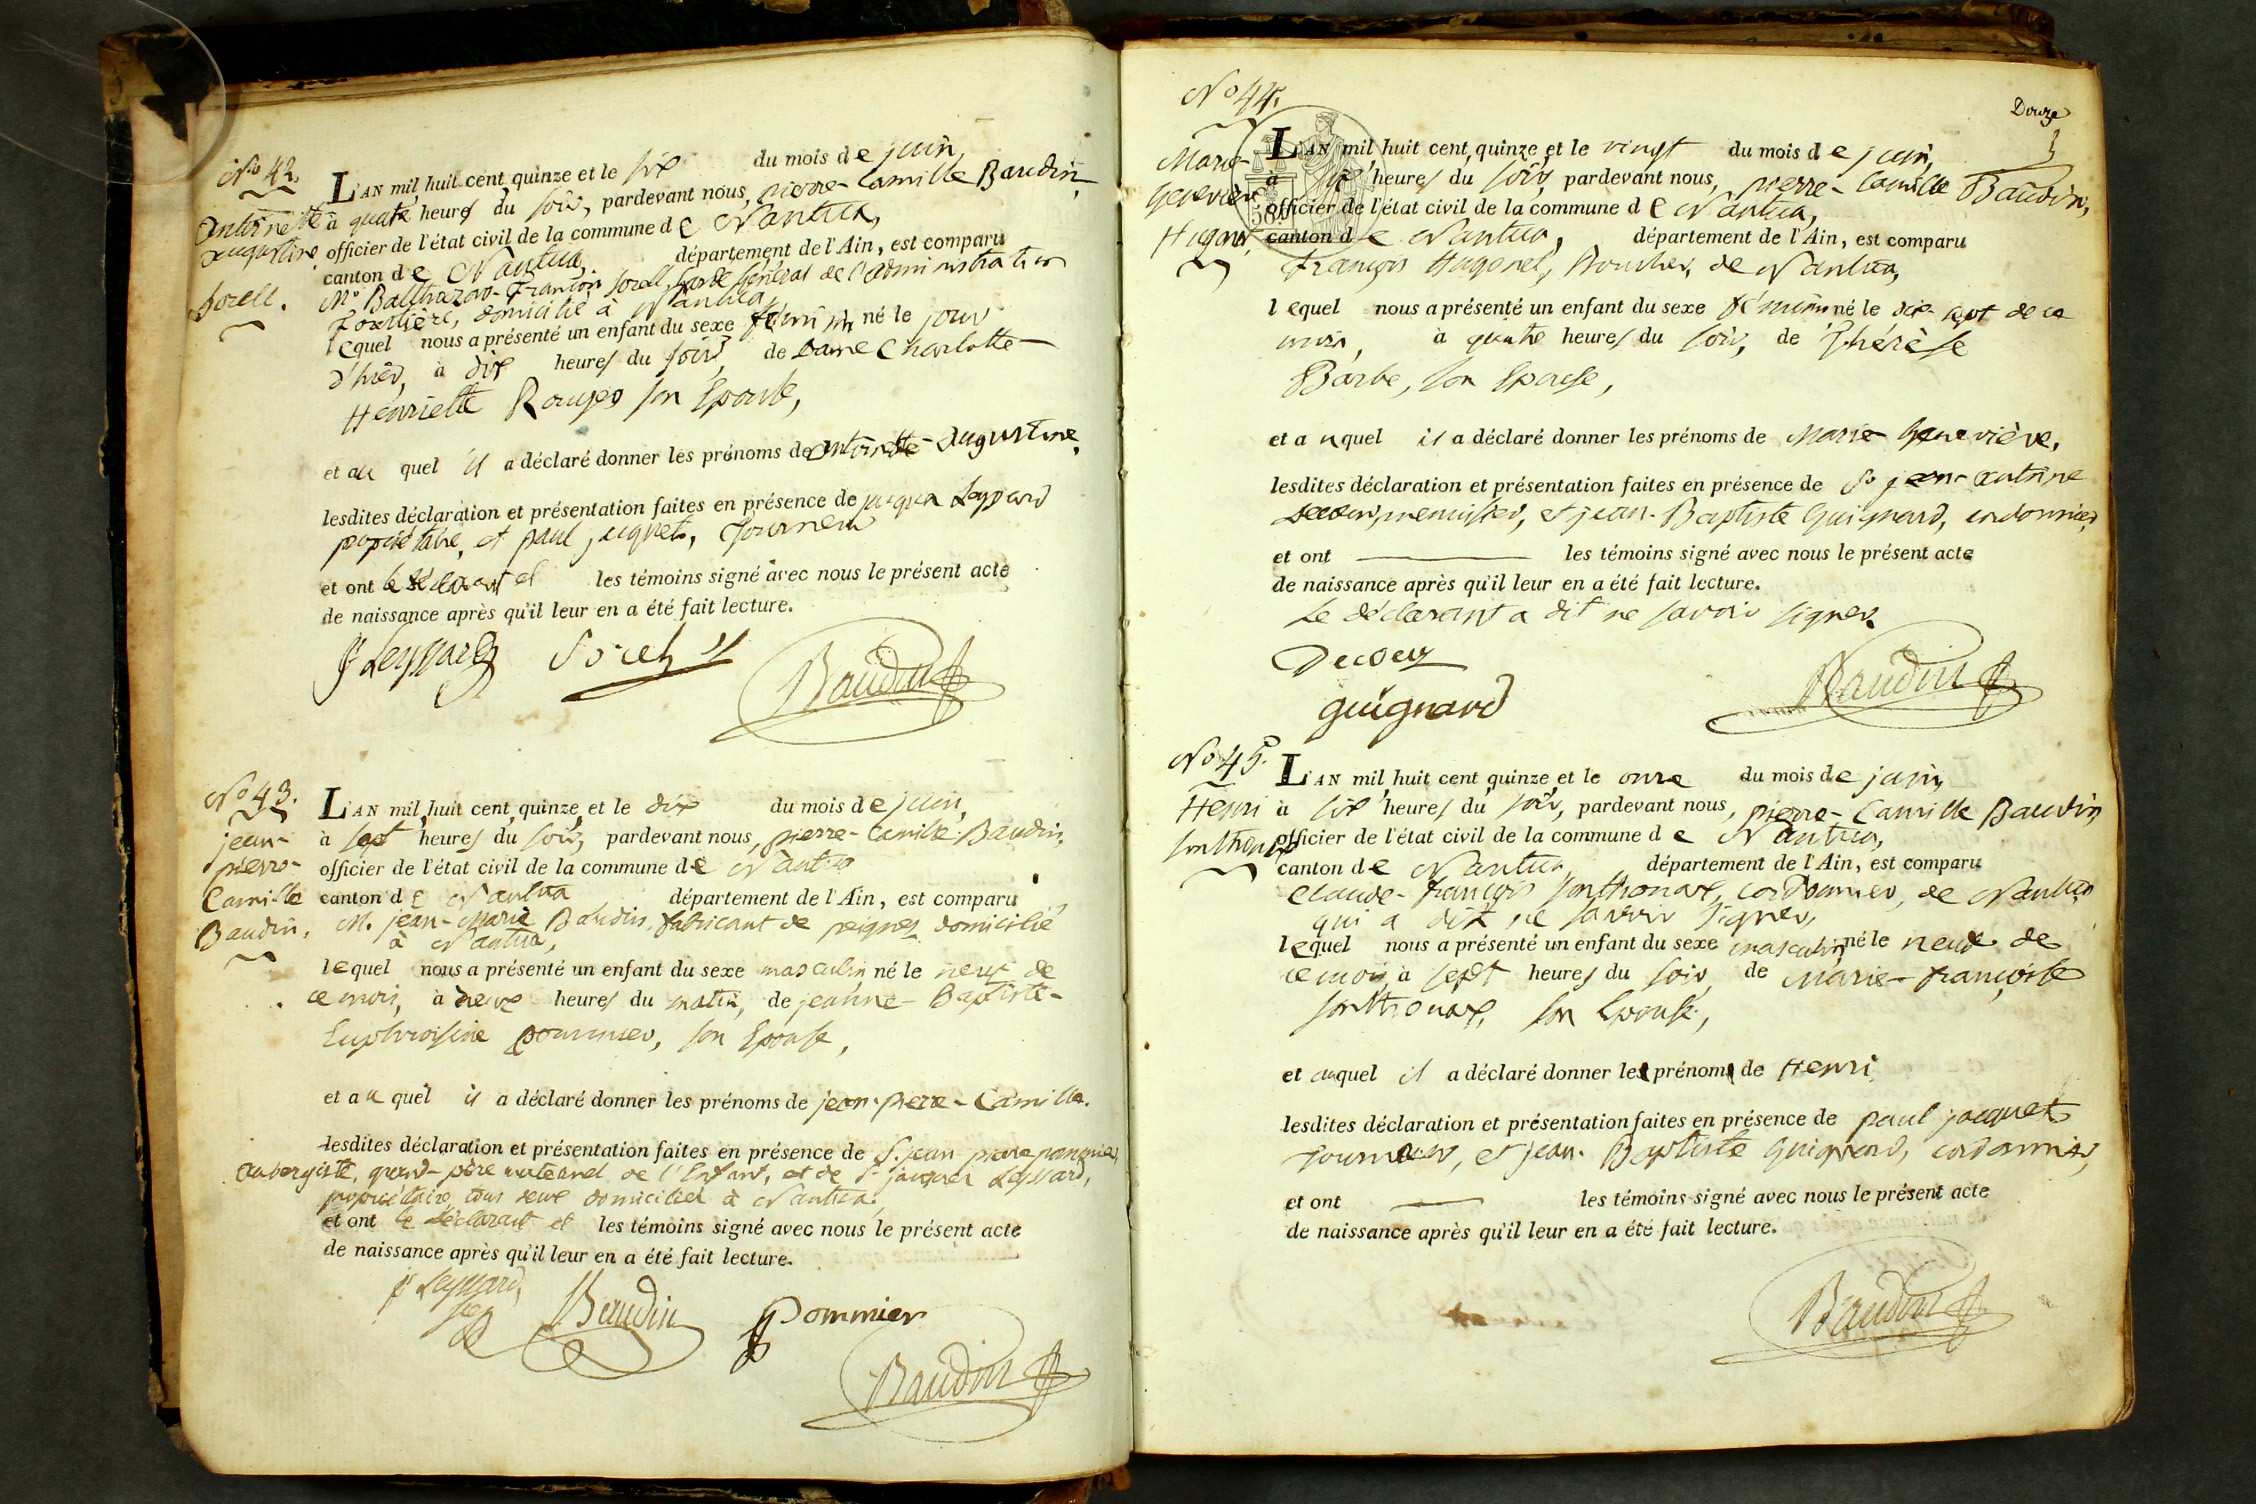 No 42.
Antoinette
augustine
Sorell.
L'AN mil huit cent quinze et le six du mois de juin,
à quatre heures du soir, pardevant nous, pierre-Camille Baudin,
officier de l'état civil de la commune de Nantua,
canton de Nantua, département de l'Ain, est comparu
Mr Balthazar-François Sorell, Garde Général de l'administration
Forestière, domicilié à Nantua,
lequel nous a présenté un enfant du sexe féminin né le jour
d'hier, à dix heures du soir, de Dame Charlotte-
Henriette son Epouse,
et au quel il a déclaré donner les prénoms de antoinette-augustine.
lesdites déclaration et présentation faites en présence de jacques Leyssard
propriétaire, et paul jacquet, Tourneur
et ont le déclarant et les témoins signé avec nous le présent acte
de naissance après qu'il leur en a été fait lecture.
Jq Leyssard Sorell Baudin
No 43.
jean-
pierre-
Camille
Baudin.
L'AN mil huit cent quinze et le dix du mois de juin,
à sept heures du soir, pardevant nous, pierre-Camille Baudin,
officier de l'état civil de la commune de Nantua
canton de Nantua département de l'Ain, est comparu
M. jean-Marie Baudin, fabricant de peignes domicilié
à Nantua,
lequel nous a présenté un enfant du sexe masculin né le neuf de
ce mois, à neuf heures du matin, de jeanne-Baptiste-
Euphroisine pommier, son Epouse,
et au quel il a déclaré donner les prénoms de jean-pierre-Camille.
lesdites déclaration et présentation faites en présence de S. jean pierre pommier,
aubergiste, grand-père maternel de l'Enfant, et de Sr jacques Leyssard,
propriétaire, tous deux domiciliés à Nantua,
et ont le déclarant et les témoins signé avec nous le présent acte
de naissance après qu'il leur en a été fait lecture.
jq Leyssard, Baudin Pommier
Baudin
Douze
No 44.
Marie-
Geneviève
Hugonet
L'AN mil huit cent quinze et le vingt du mois de juin,
à six heures du soir, pardevant nous, pierre-Camille Baudin,
officier de l'état civil de la commune de Nantua,
canton de Nantua, département de l'Ain, est comparu
François Hugonet, Boucher, de Nantua,
lequel nous a présenté un enfant du sexe féminin né le dix-sept de ce
mois, à quatre heures du soir, de Thérèse
Barbe, son Epouse,
et auquel il a déclaré donner les prénoms de Marie-Geneviève.
lesdites déclaration et présentation faites en présence de Sr jean-antoine
menuisier, et jean-Baptiste Guignard, cordonnier,
et ont les témoins signé avec nous le présent acte
de naissance après qu'il leur en a été fait lecture.
Le déclarant a dit ne savoir signer.
guignard
Baudin
No 45.
Henri
Sonthonax
L'AN mil huit cent quinze et le onze du mois de juin,
à six heures du soir, pardevant nous, pierre-Camille Baudin
officier de l'état civil de la commune de Nantua,
canton de Nantua, département de l'Ain, est comparu
Claude-françois Sonthonax, cordonnier, de Nantua
qui a dit ne savoir signer,
lequel nous a présenté un enfant du sexe masculin né le neuf de
ce mois, à sept heures du soir, de Marie-françoise
Sonthonax, son Epouse,
et auquel il a déclaré donner les prénoms de Henri
lesdites déclaration et présentation faites en présence de paul jacquet
Tourneur, et jean-Baptiste Guignard, cordonnier,
et ont les témoins signé avec nous le présent acte
de naissance après qu'il leur en a été fait lecture.
Baudin